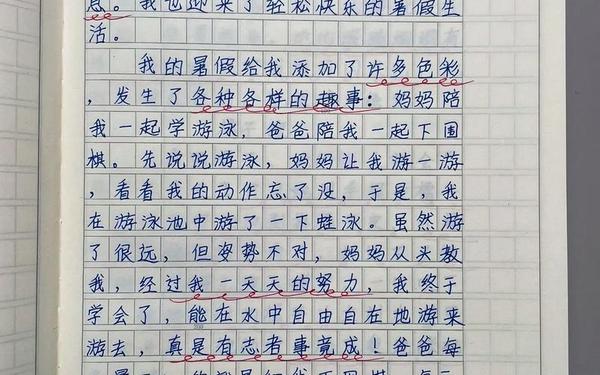 息。我也迎来了轻松快乐的暑假生
活。
我的暑假给我添加了许多色彩
，发生了各种各样的趣事：妈妈陪
我一起学游泳，爸爸陪我一起下围
棋。先说说游泳，妈妈让我游一游
，看看我的动作忘了没，于是，我
在游泳池中游了一下蛙泳。虽然游
了很远，但姿势不对，妈妈从头教
我，经过我一天天的努力，我终于
学会了，能在水中自由自在地游来
游去，真是有志者事竟成！爸爸每